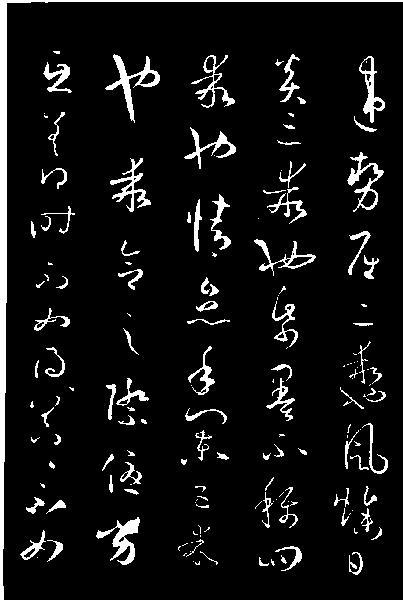 違勢屈二乖也風燥日
炎三乖也紙墨不稱四
乖也情怠手闌五乖
也乖合之際優劣
互差得時不如得〻器〻不如